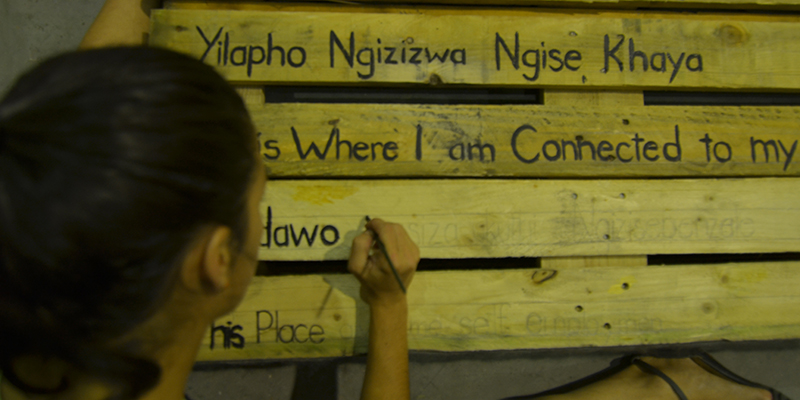 Yilapho Ngizizwa Ngise Khaya
is Where I am Connected to my
dawo
his Place me self